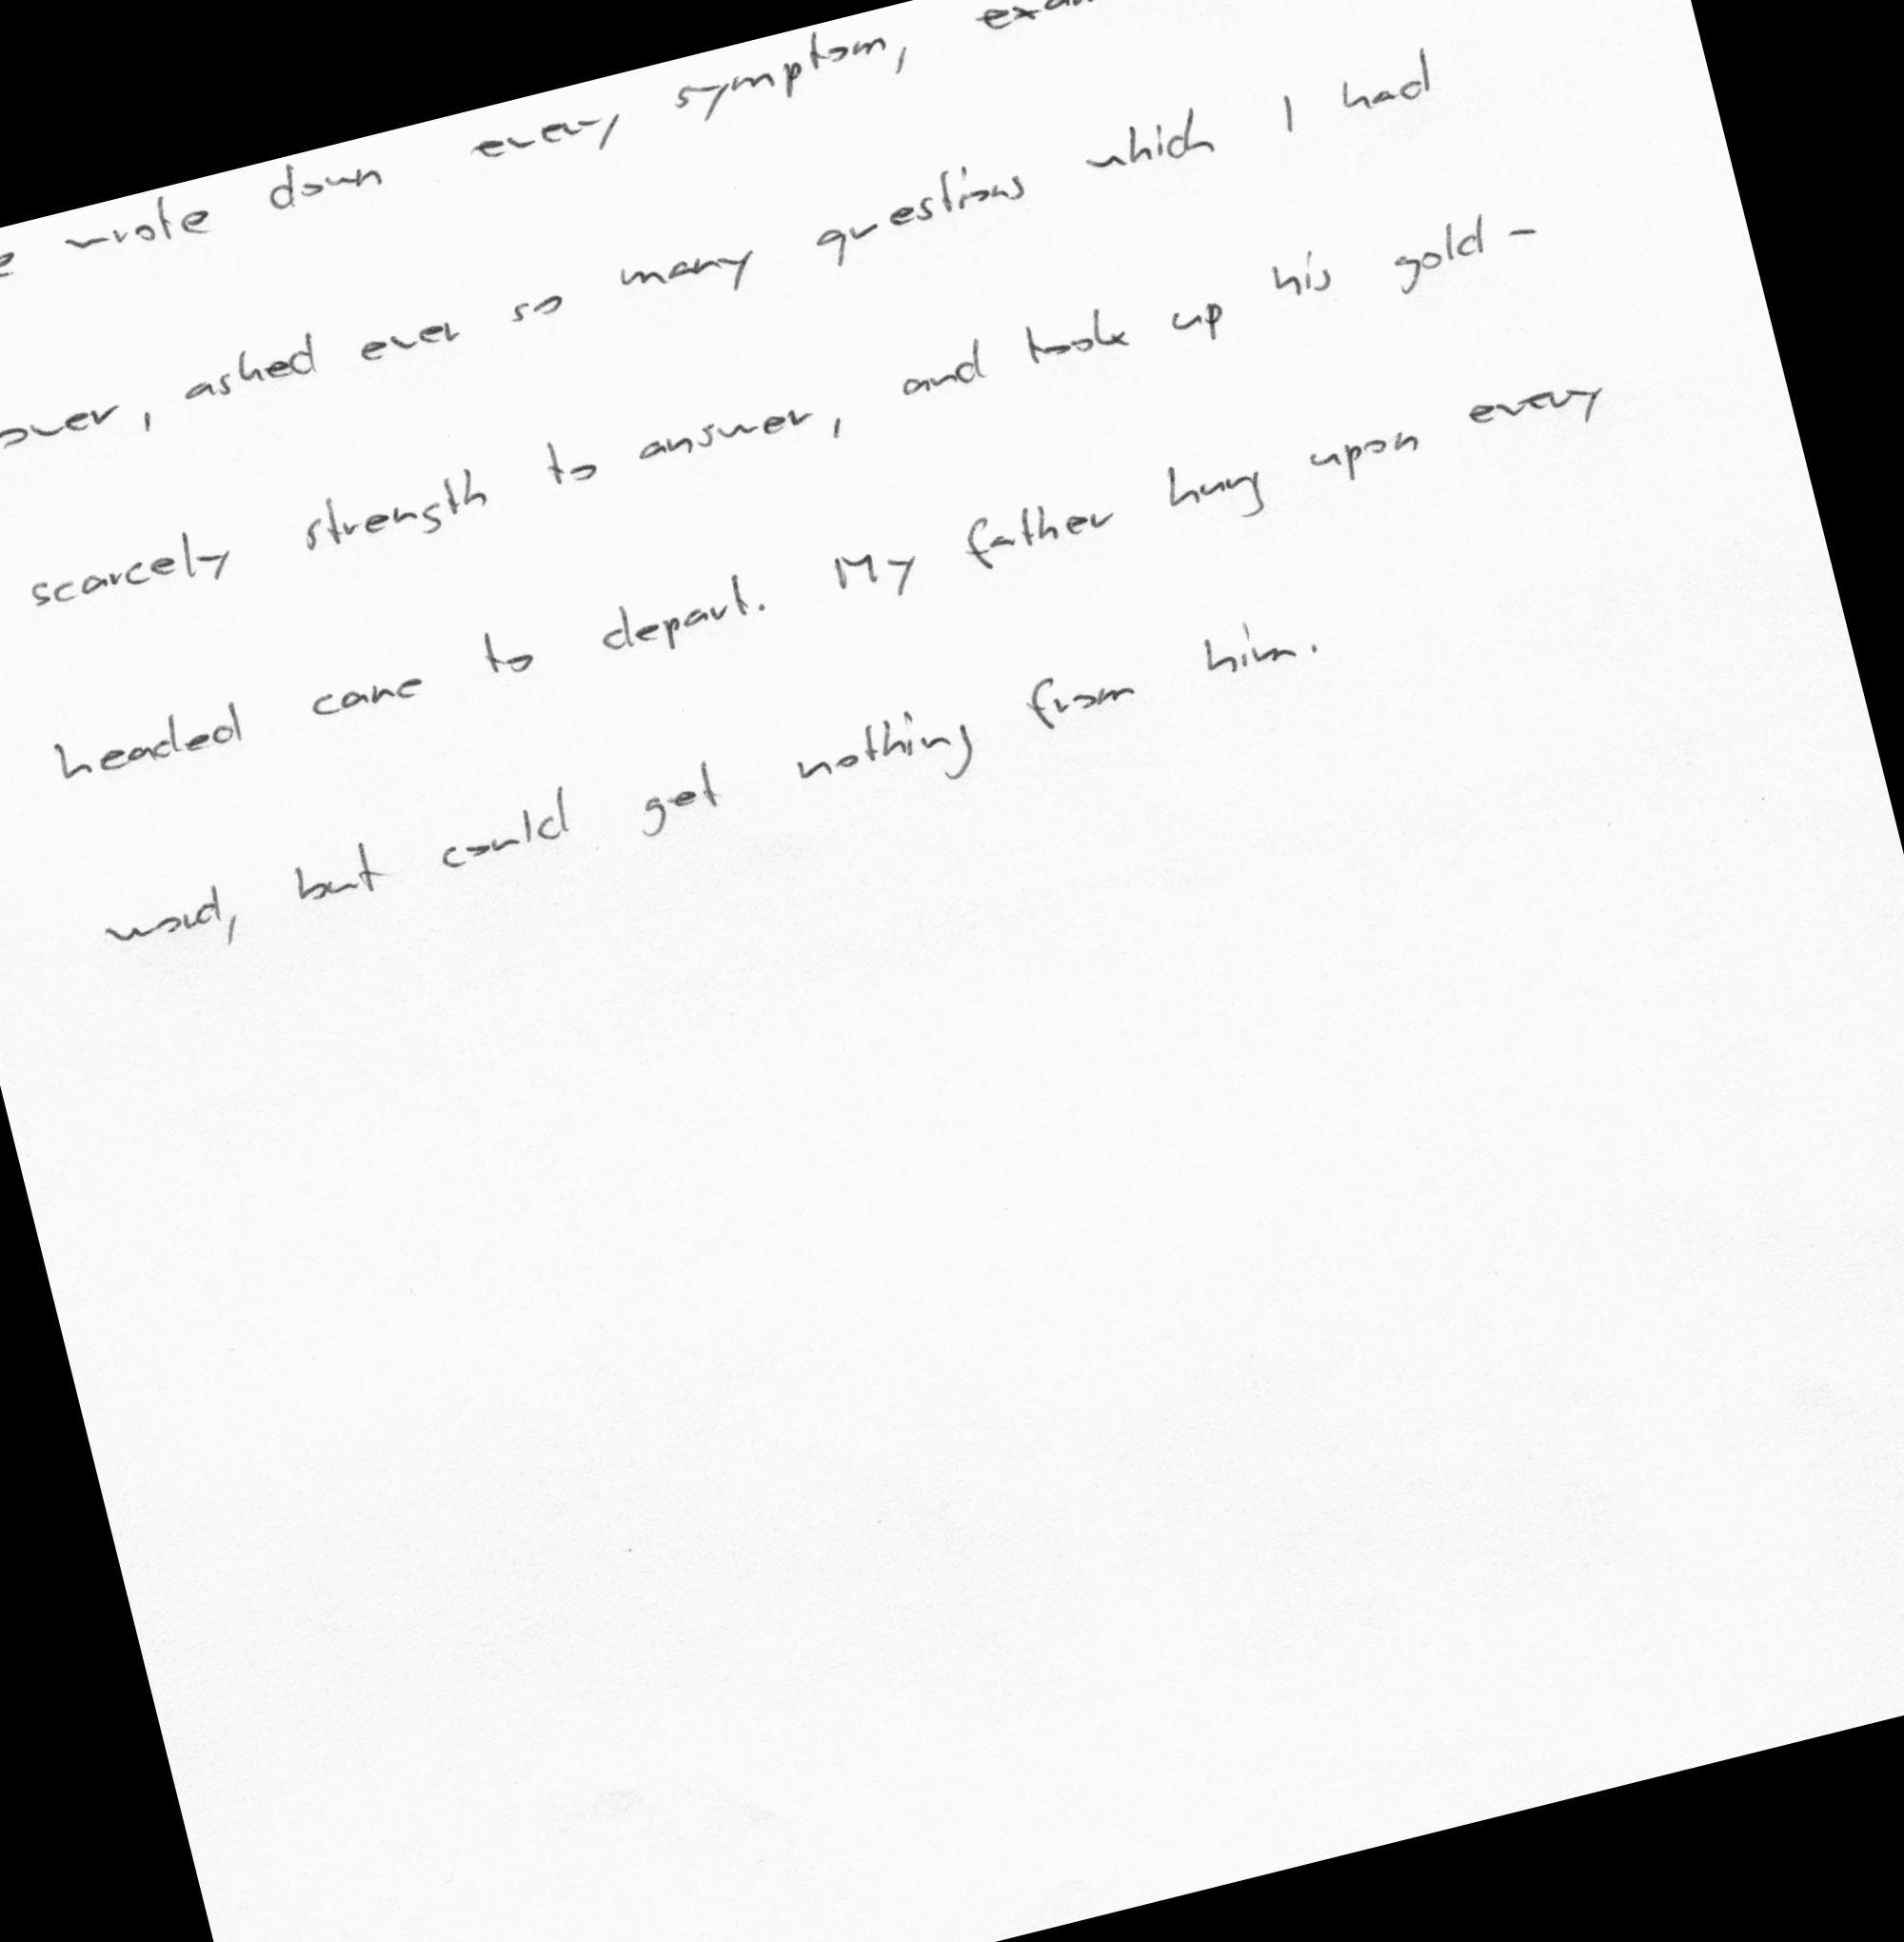 wrote down every symptom,
over, asked ever so many questions which I had
scarcely strength to answer, and took up his gold-
headed cane to depart. My father hung upon every
word, but could get nothing from him.